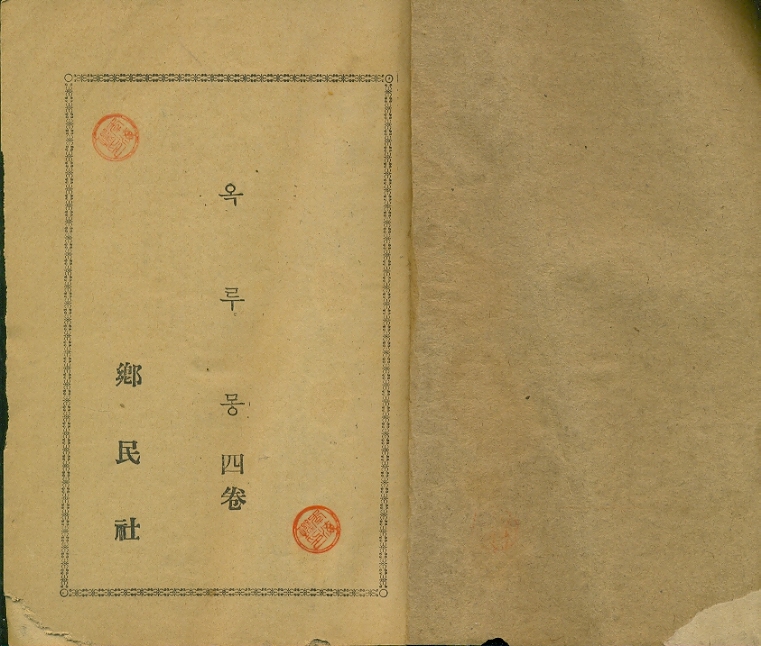 옥루몽 四卷
鄕民社